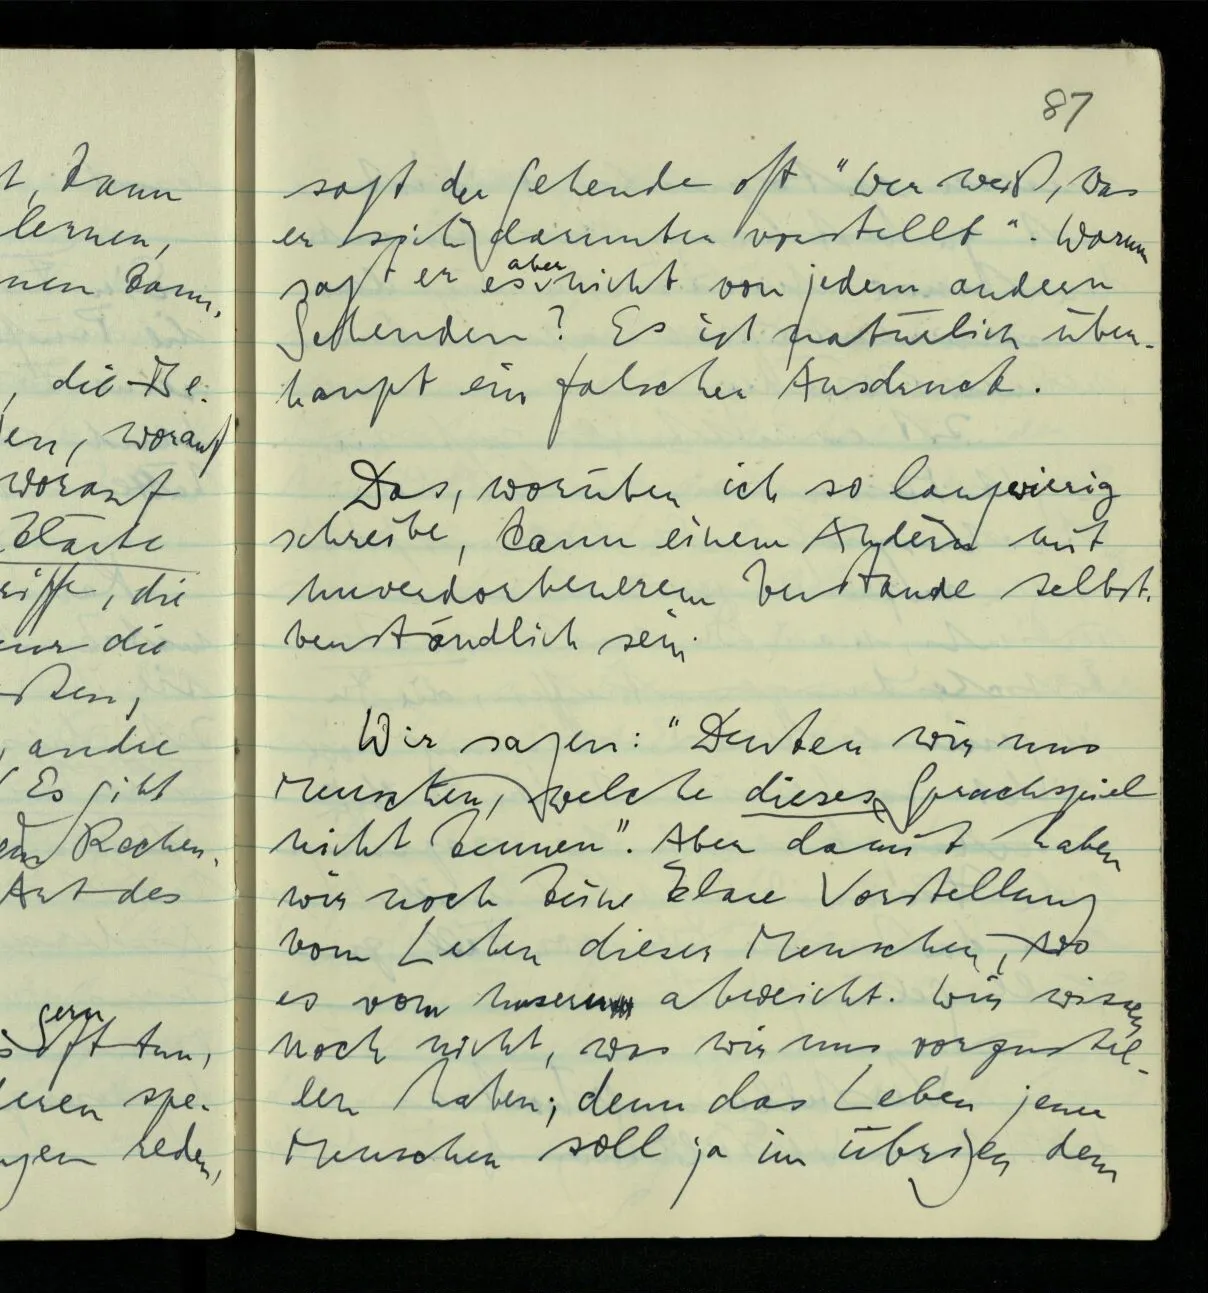 t, kann
lernen,
nen kann.
, die Be-
en, worauf
worauf
stärkste
riffe, die
nur die
sten,
, andre
Es gibt
ein Rechen-
Art des
gern
s oft tun,
deren spe-
gen reden,
87
sagt der Sehende oft "Wer weiß, was
er sich darunter vorstellt". Warum
aber
sagt er es nicht von jedem andern
Sehenden? Es ist natürlich über-
haupt ein falscher Ausdruck.
Das, worüber ich so langwierig
schreibe, kann einem Andern mit
unverdorbenerem Verstande selbst-
verständlich sein.
Wir sagen: "Denken wir uns
Menschen, welche dieses Sprachspiel
nicht kennen". Aber damit haben
wir noch keine klare Vorstellung
vom Leben dieser Menschen, wo
es vom unsern abweicht. Wir wissen
noch nicht, was wir uns vorzustel-
len haben; denn das Leben jener
Menschen soll ja im übrigen dem